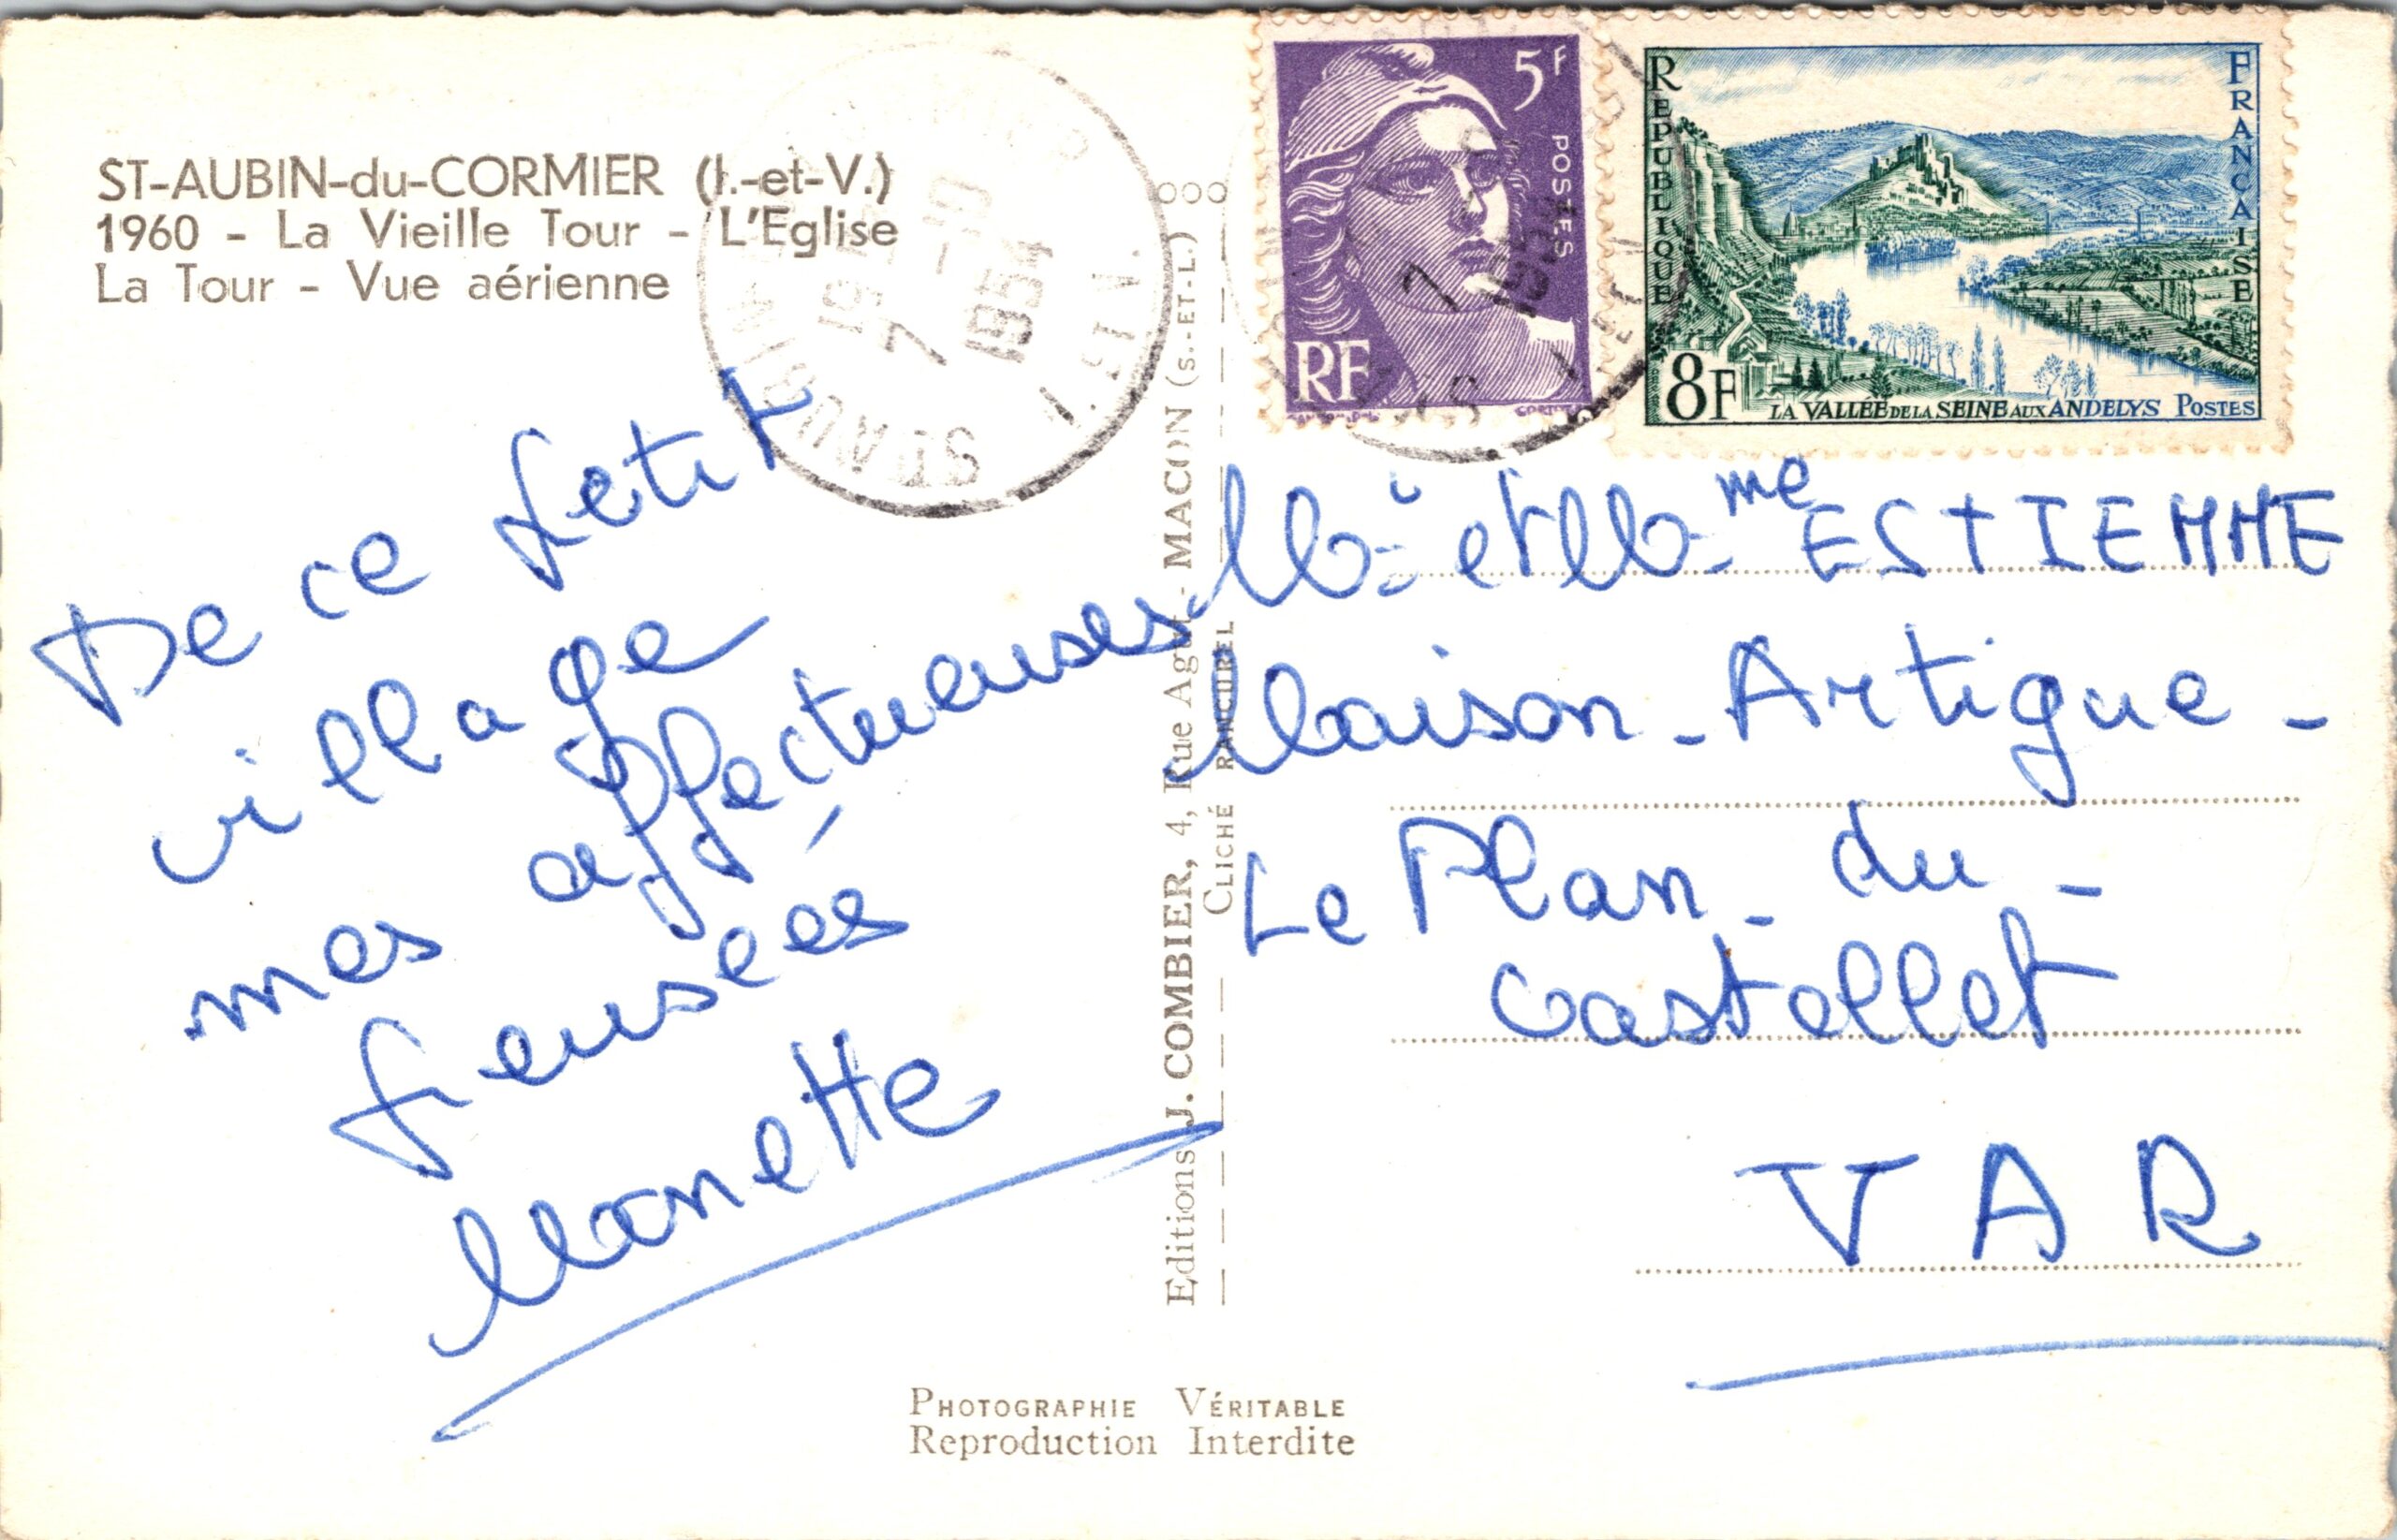 ST-AUBIN-du-CORMIER (I.-et-V.)
1960 - La Vieille Tour - L'Eglise
La Tour - Vue aérienne
De ce petit
village
mes affectueuses
pensées
Manette
Editions J. COMBIER, 4, Rue Agut - MACON (S.-ET-L.)
CLICHÉ RANCUREL
PHOTOGRAPHIE VÉRITABLE
Reproduction Interdite
5F
POSTES
RF
REPUBLIQUE
FRANCAISE
8F
LA VALLÉE DE LA SEINE AUX ANDELYS POSTES
ST AUBIN
7 -10
1954
I. ET V.
Mr et Mme ESTIENNE
Maison - Artigue -
Le Plan - du -
Castellet
VAR